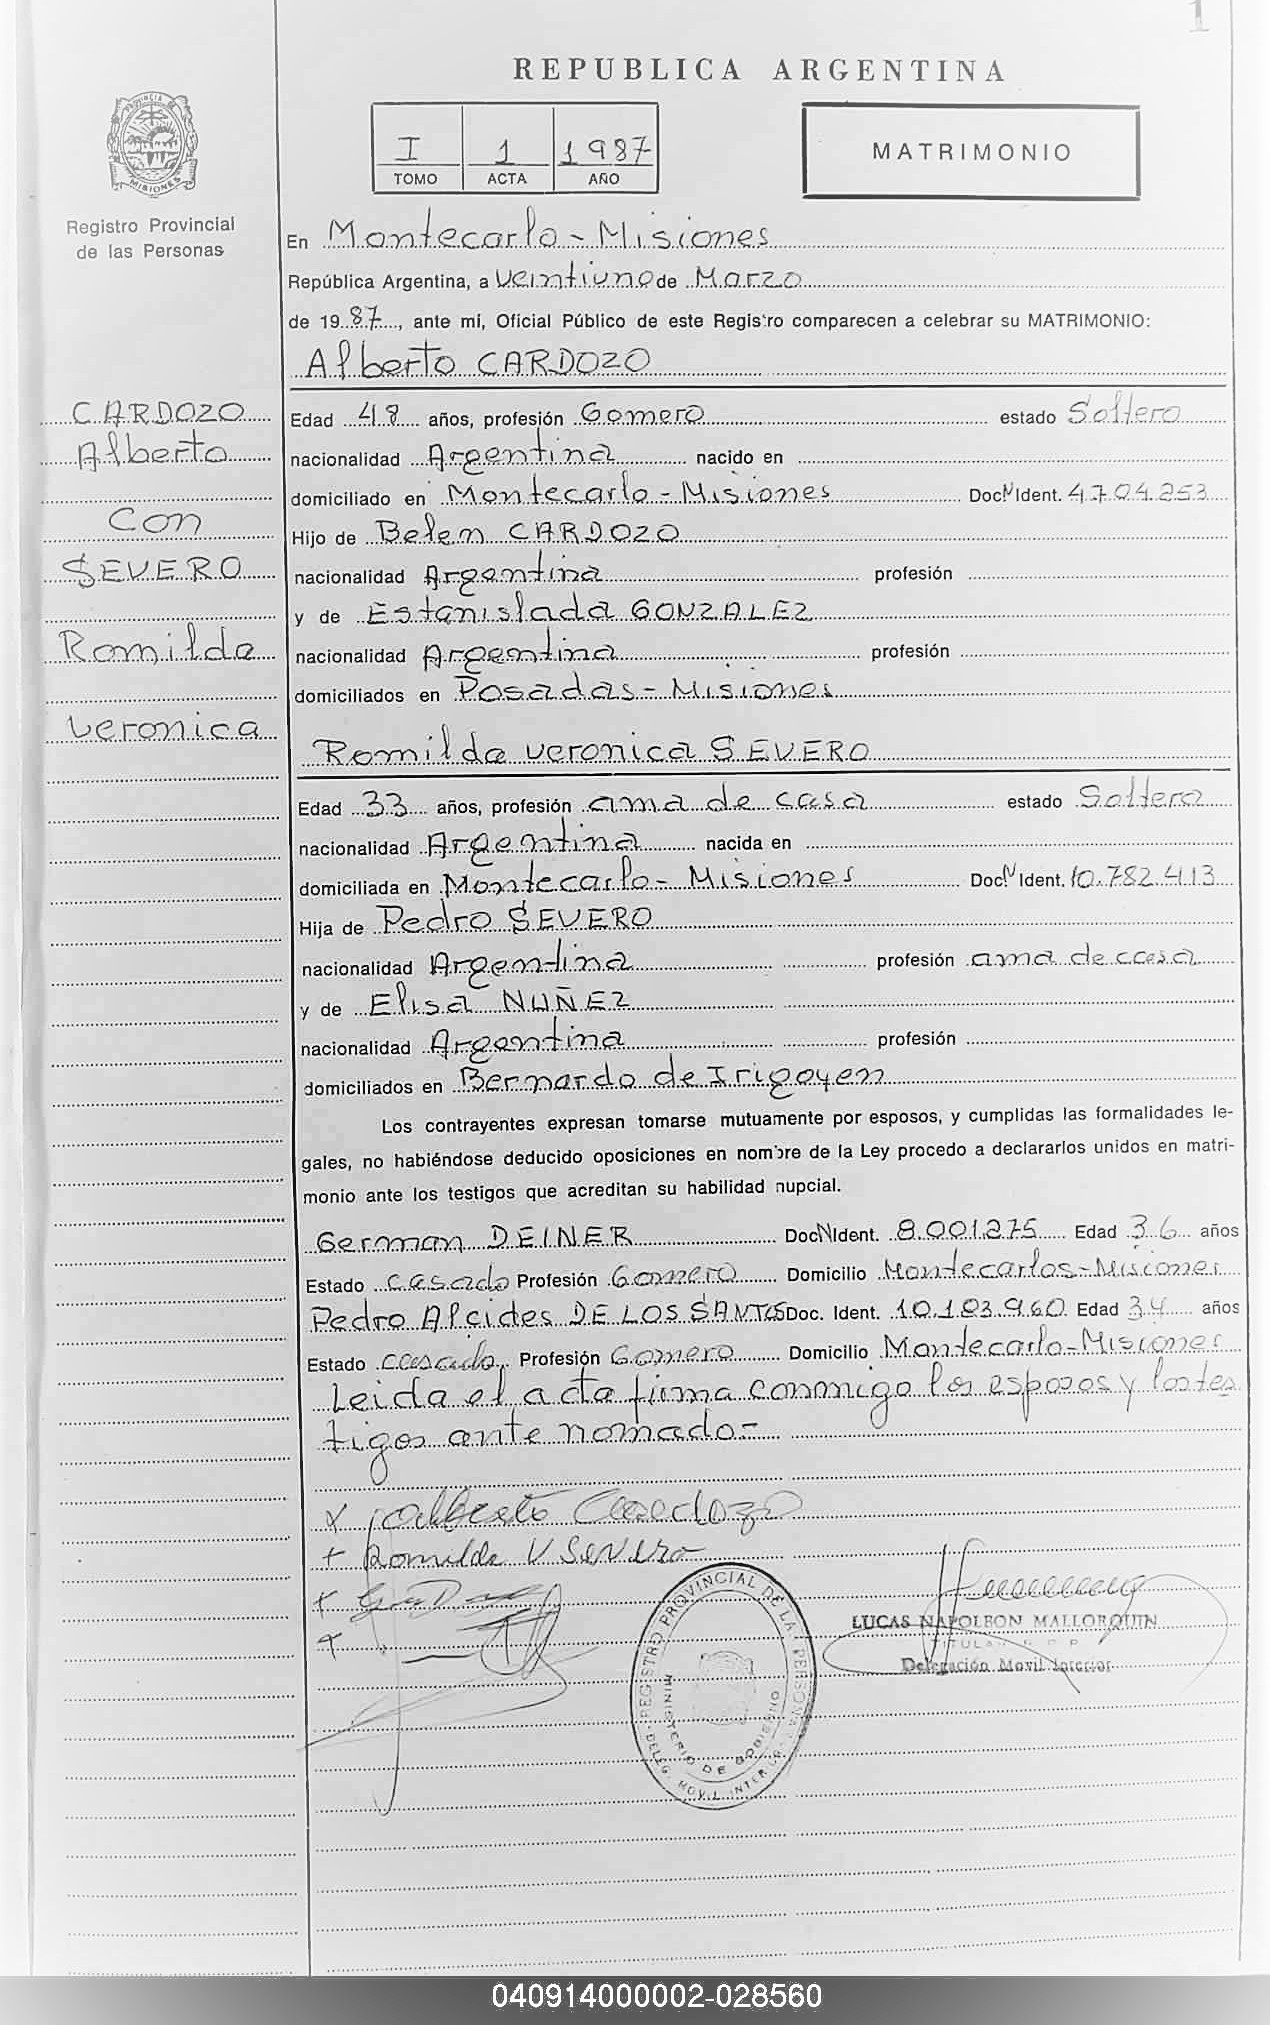 1
REPUBLICA ARGENTINA
PROVINCIA DE MISIONES
Registro Provincial
de las Personas
I 1 1987
TOMO ACTA AÑO
MATRIMONIO
En Montecarlo - Misiones
República Argentina, a veintiuno de Marzo
de 1987, ante mi, Oficial Público de este Registro comparecen a celebrar su MATRIMONIO:
Alberto CARDOZO
CARDOZO
Alberto
Con
SEVERO
Romilda
Veronica
Edad 48 años, profesión Gomero estado Soltero
nacionalidad Argentina nacido en
domiciliado en Montecarlo - Misiones Doc.N Ident. 4.704.253
Hijo de Belen CARDOZO
nacionalidad Argentina profesión
y de Estanislada GONZALEZ
nacionalidad Argentina profesión
domiciliados en Posadas - Misiones
Romilda veronica SEVERO
Edad 33 años, profesión ama de casa estado Soltera
nacionalidad Argentina nacida en
domiciliada en Montecarlo - Misiones Doc.N Ident. 10.782.413
Hija de Pedro SEVERO
nacionalidad Argentina profesión ama de casa
y de Elisa NUÑEZ
nacionalidad Argentina profesión
domiciliados en Bernardo de Irigoyen
Los contrayentes expresan tomarse mutuamente por esposos, y cumplidas las formalidades le-
gales, no habiéndose deducido oposiciones en nombre de la Ley procedo a declararlos unidos en matri-
monio ante los testigos que acreditan su habilidad nupcial.
German DEINER Doc.N Ident. 8.001.275 Edad 36 años
Estado casado Profesión Gomero Domicilio Montecarlos - Misiones
Pedro Alcides DE LOS SANTOS Doc. Ident. 10.183.960 Edad 34 años
Estado casado Profesión Gomero Domicilio Montecarlo - Misiones
Leida el acta firma conmigo los esposos y los tes
tigos ante nomado -
x Alberto Cardozo
+ Romilda V Severo
LUCAS NAPOLEON MALLORQUIN
TITULAR R.C.P.
Delegación Movil Interior
REGISTRO PROVINCIAL DE LA PERSONA
MINISTERIO DE GOBIERNO
DELEG. MOVIL INTERIOR
040914000002-028560